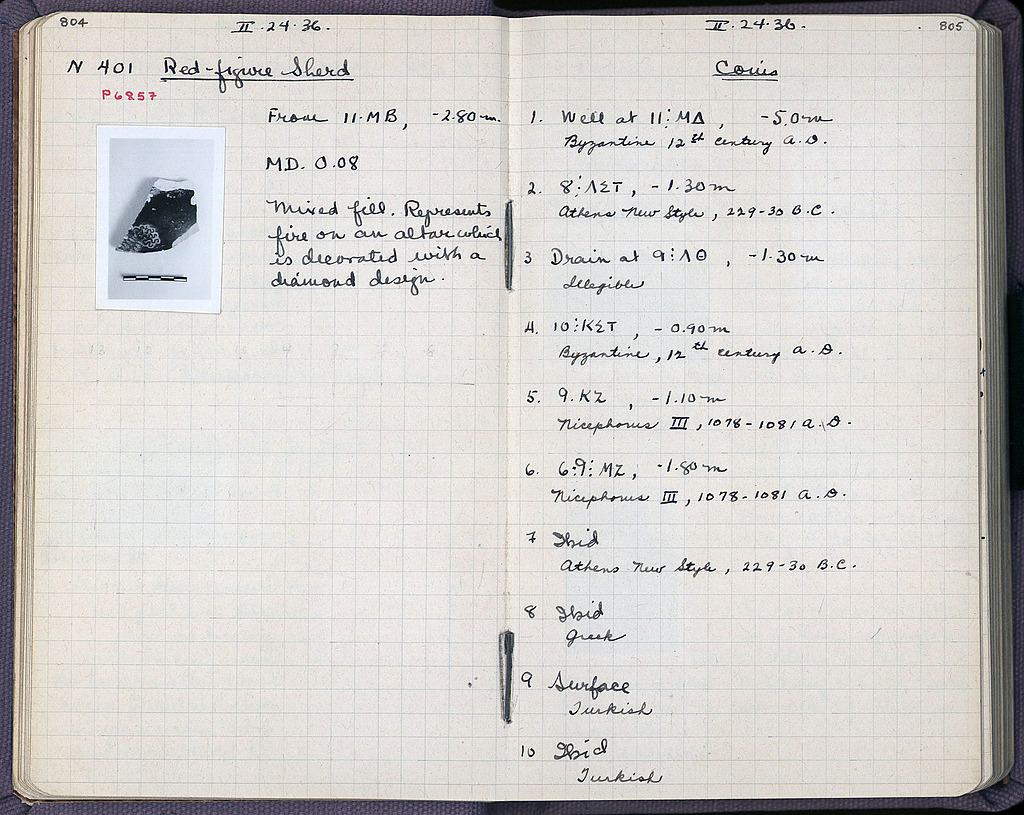 804
II·24·36.
N 401 Red-figure Sherd
P6857
From 11·MB, -2.80m.
MD. 0.08
Mixed fill. Represents
fire on an altar which
is decorated with a
diamond design.
II·24·36.
805
Coins
1. Well at 11:ΜΔ, -5.0m
Byzantine 12th century A.D.
2. 8:ΛΣΤ, -1.30m
Athens New Style, 229-30 B.C.
3 Drain at 9:ΛΘ, -1.30m
Illegible
4. 10:ΚΣΤ, -0.90m
Byzantine, 12th century A.D.
5. 9.ΚΖ, -1.10m
Nicephorus III, 1078-1081 A.D.
6. 6:9:ΜΖ, -1.80m
Nicephorus III, 1078-1081 A.D.
7 Ibid
Athens New Style, 229-30 B.C.
8 Ibid
Greek
9 Surface
Turkish
10 Ibid
Turkish